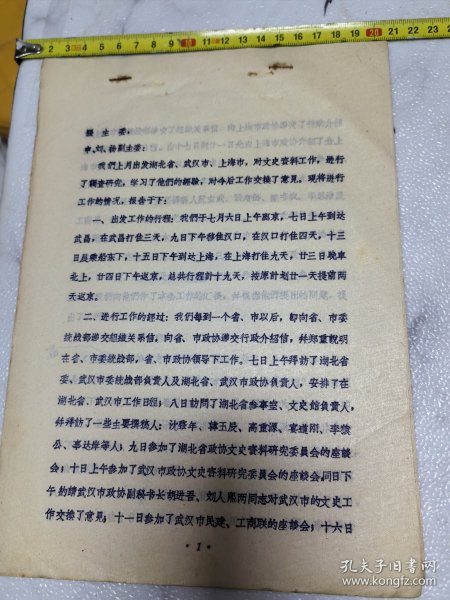 主委、
申、刘、杨副主委：
我们上月出发湖北省、武汉市、上海市，对文史资料工作，进行
了调查研究，学习了他们的经验，对今后工作交换了意见。现将进行
工作的情况，报告于下：
一、出发工作的行程：我们于七月六日上午离京，七日上午到达
武昌，在武昌住三天，九日下午移住汉口，在汉口住四天，十三
日晨乘船东下，十五日下午到达上海，在上海住九天，廿三日晚车
北上，廿四日下午返京，总共行程计十九天，按原计划廿一天提前两
天返京。
二、进行工作的经过：我们每到一个省、市以后，即向省、市委
统战部递交组织关系信，向省、市政协递交行政介绍信，并郑重说明
在省、市委统战部，省、市政协领导下工作。七日上午拜访了湖北省
委、武汉市委统战部负责人及湖北省、武汉市政协负责人，安排了在
湖北省、武汉市工作日程；八日访问了湖北省参事室、文史馆负责人，
并拜访了一些主要撰稿人：沈肇年、韩玉辰、高重源、宴道刚、李
公、等人；九日参加了湖北省政协文史资料研究委员会的座谈
会；十日上午参加了武汉市政协文史资料研究委员会的座谈会，同日下
午约请武汉市政协副秘书长胡进吾、刘人熙两同志对武汉市的文史工
作交换了意见；十一日参加了武汉市民建、工商联的座谈会；十六日
·1·
孔夫子旧书网
www.kongfz.com